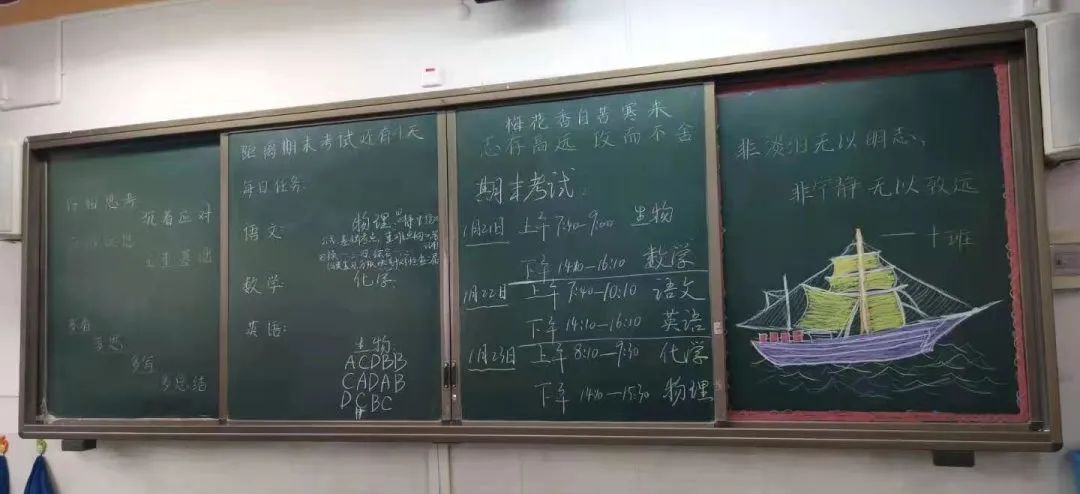 仔细思考
沉着应对
注重基础
多看
多思
多写
多总结
距离期末考试还有1天
每日任务:
语文:
物理:
数学:
化学:
英语:
生物:
ACDBB
CADAB
DCBC
梅花香自苦寒来
志存高远 攻而不舍
期末考试:
1月21日 上午 7:40—9:00 生物
下午 14:10—16:10 数学
1月22日 上午 7:40—10:10 语文
下午 14:10—16:10 英语
1月23日 上午 8:10—9:30 化学
下午 14:10—15:30 物理
非淡泊无以明志、
非宁静无以致远
——十班